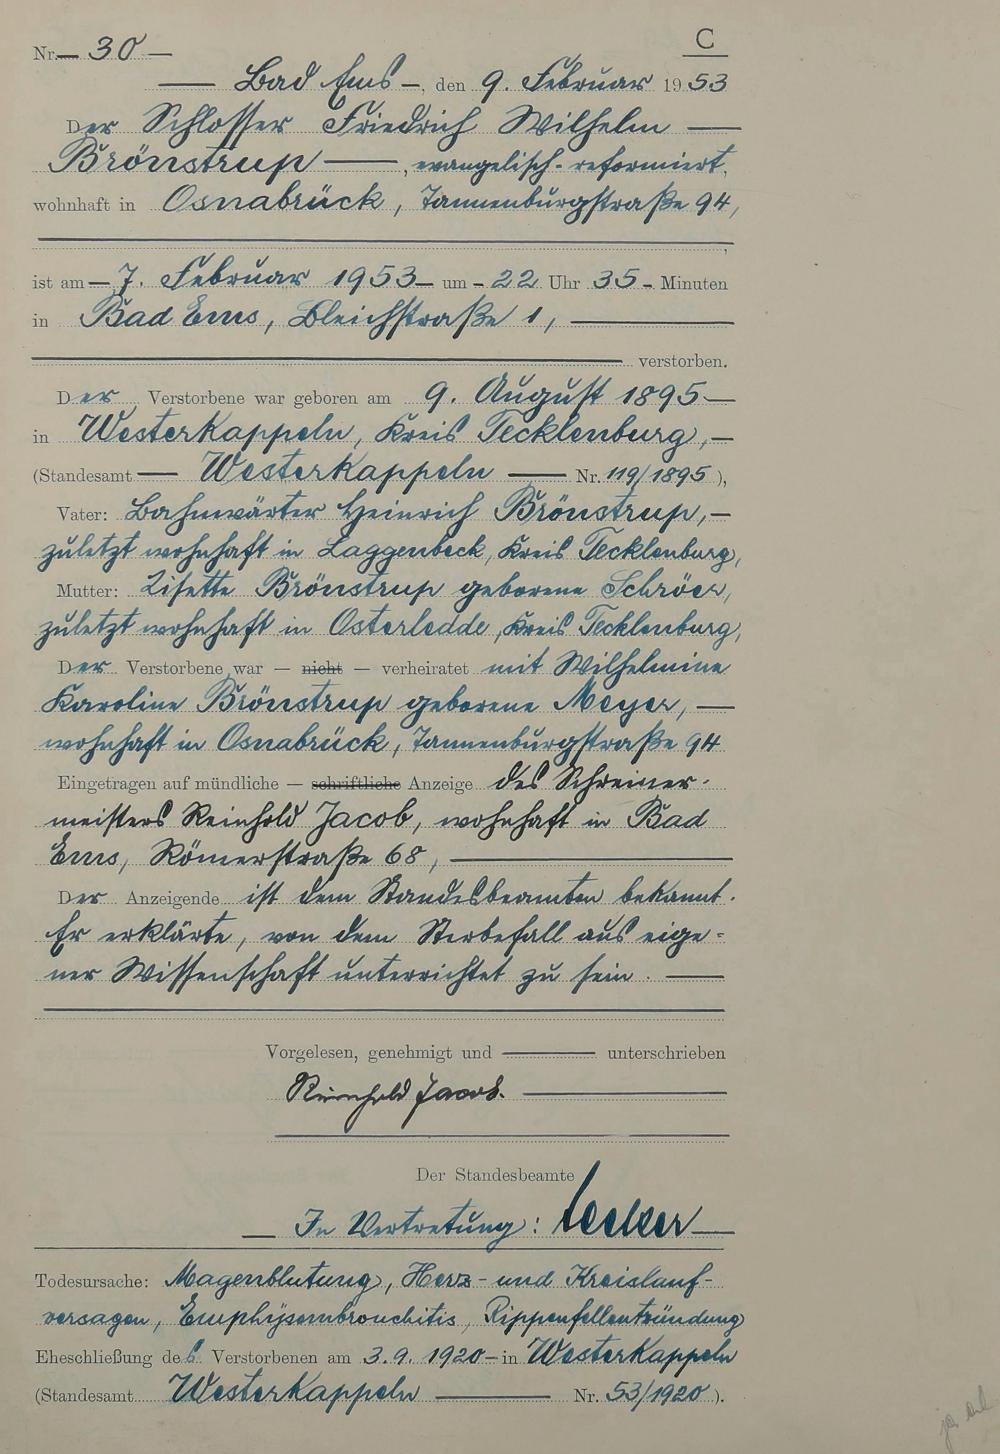 C
Nr. — 30 —
— Bad Ems —, den 9. Februar 1953
Der Schlosser Friedrich Wilhelm —
Brönstrup —, evangelisch-reformiert,
wohnhaft in Osnabrück, Tannenburgstraße 94,
ist am — 7. Februar 1953 — um — 22 Uhr 35 — Minuten
in Bad Ems, Bleichstraße 1, —
— verstorben.
Der Verstorbene war geboren am 9. August 1895 —
in Westerkappeln, Kreis Tecklenburg, —
(Standesamt — Westerkappeln — Nr. 119/1895),
Vater: Bahnwärter Heinrich Brönstrup, —
zuletzt wohnhaft in Laggenbeck, Kreis Tecklenburg,
Mutter: Lisette Brönstrup geborene Schröer,
zuletzt wohnhaft in Osterledde, Kreis Tecklenburg,
Der Verstorbene war — nicht — verheiratet mit Wilhelmine
Karoline Brönstrup geborene Meyer, —
wohnhaft in Osnabrück, Tannenburgstraße 94
Eingetragen auf mündliche — schriftliche Anzeige des Schreiner-
meisters Reinhold Jacob, wohnhaft in Bad
Ems, Römerstraße 68, —
Der Anzeigende ist dem Standesbeamten bekannt.
Er erklärte, von dem Sterbefall aus eige-
ner Wissenschaft unterrichtet zu sein. —
Vorgelesen, genehmigt und — unterschrieben
Reinhold Jacob. —
Der Standesbeamte
— In Vertretung: —
Todesursache: Magenblutung, Herz- und Kreislauf-
versagen, Emphysembronchitis, Rippenfellentzündung
Eheschließung des Verstorbenen am 3.9.1920 — in Westerkappeln
(Standesamt Westerkappeln — Nr. 53/1920).